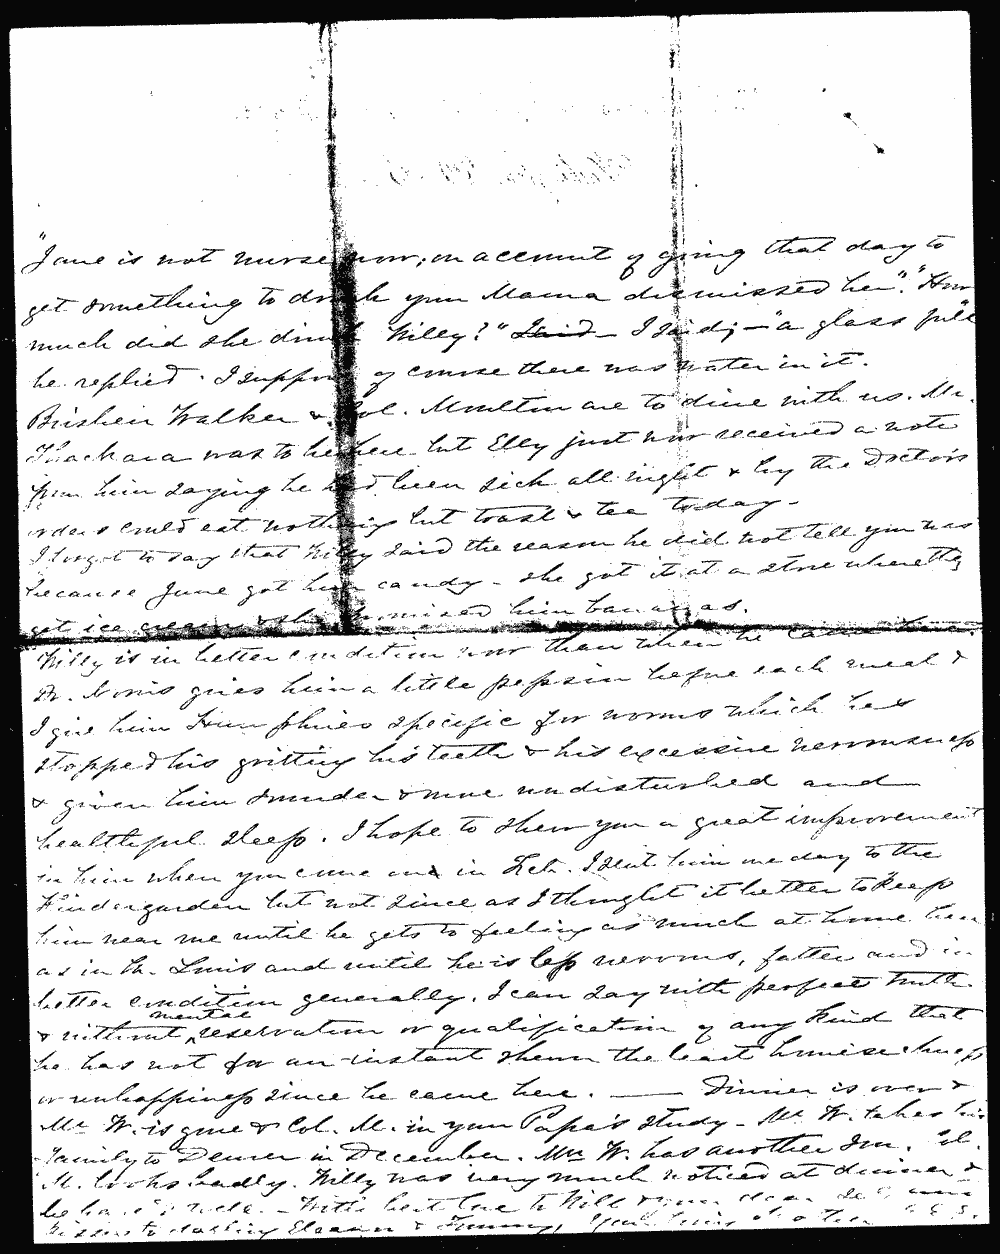 "Jane is not nurse now; on account of going that day to
get something to drink your Mama dismissed her". "How
much did she drink Willy?" Said - I said; - "a glass full"
he replied. I suppose of course there was water in it.
Walker & Col. Moulton are to dine with us. Mr.
Thackara was to be here but Elly just now received a note
from him saying he had been sick all night & by the Doctors
orders could eat nothing but toast & tea today -
I forgot to say that Willy said the reason he did not tell you was
because Jane got him candy - she got it at a store where they
get ice cream & she promised him bananas.
Willy is in better condition now than when he came home.
Dr. Norris gives him a little pepsin before each meal &
I give him Humphries specific for worms which has
stopped his gritting his teeth & his excessive nervousness
& given him sounder & more undisturbed and
healthful sleep. I hope to show you a great improvement
in him when you come on in Feb. I sent him one day to the
Kindergarden but not since as I thought it better to keep
him near me until he gets to feeling as much at home here
as in St. Louis and until he is less nervous, fatter and in
better condition generally. I can say with perfect truth
& without mental reservation or qualification of any kind that
he has not for an instant shown the least homesickness
or unhappiness since he came here. — Dinner is over &
Mr. W. is gone & Col. M. in your Papa's study - Mr. W. takes his
family to Denver in December. Mrs W. has another son. Col.
M. looks badly. Willy was very much noticed at dinner &
behaved - With best love to Will & your dear
kisses to darling Eleanor & Tommy, Your loving mother E.E.S.